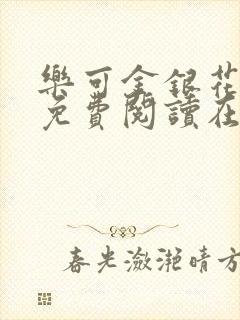 樂可金銀花
免費閱讀在
春光瀲灔晴方